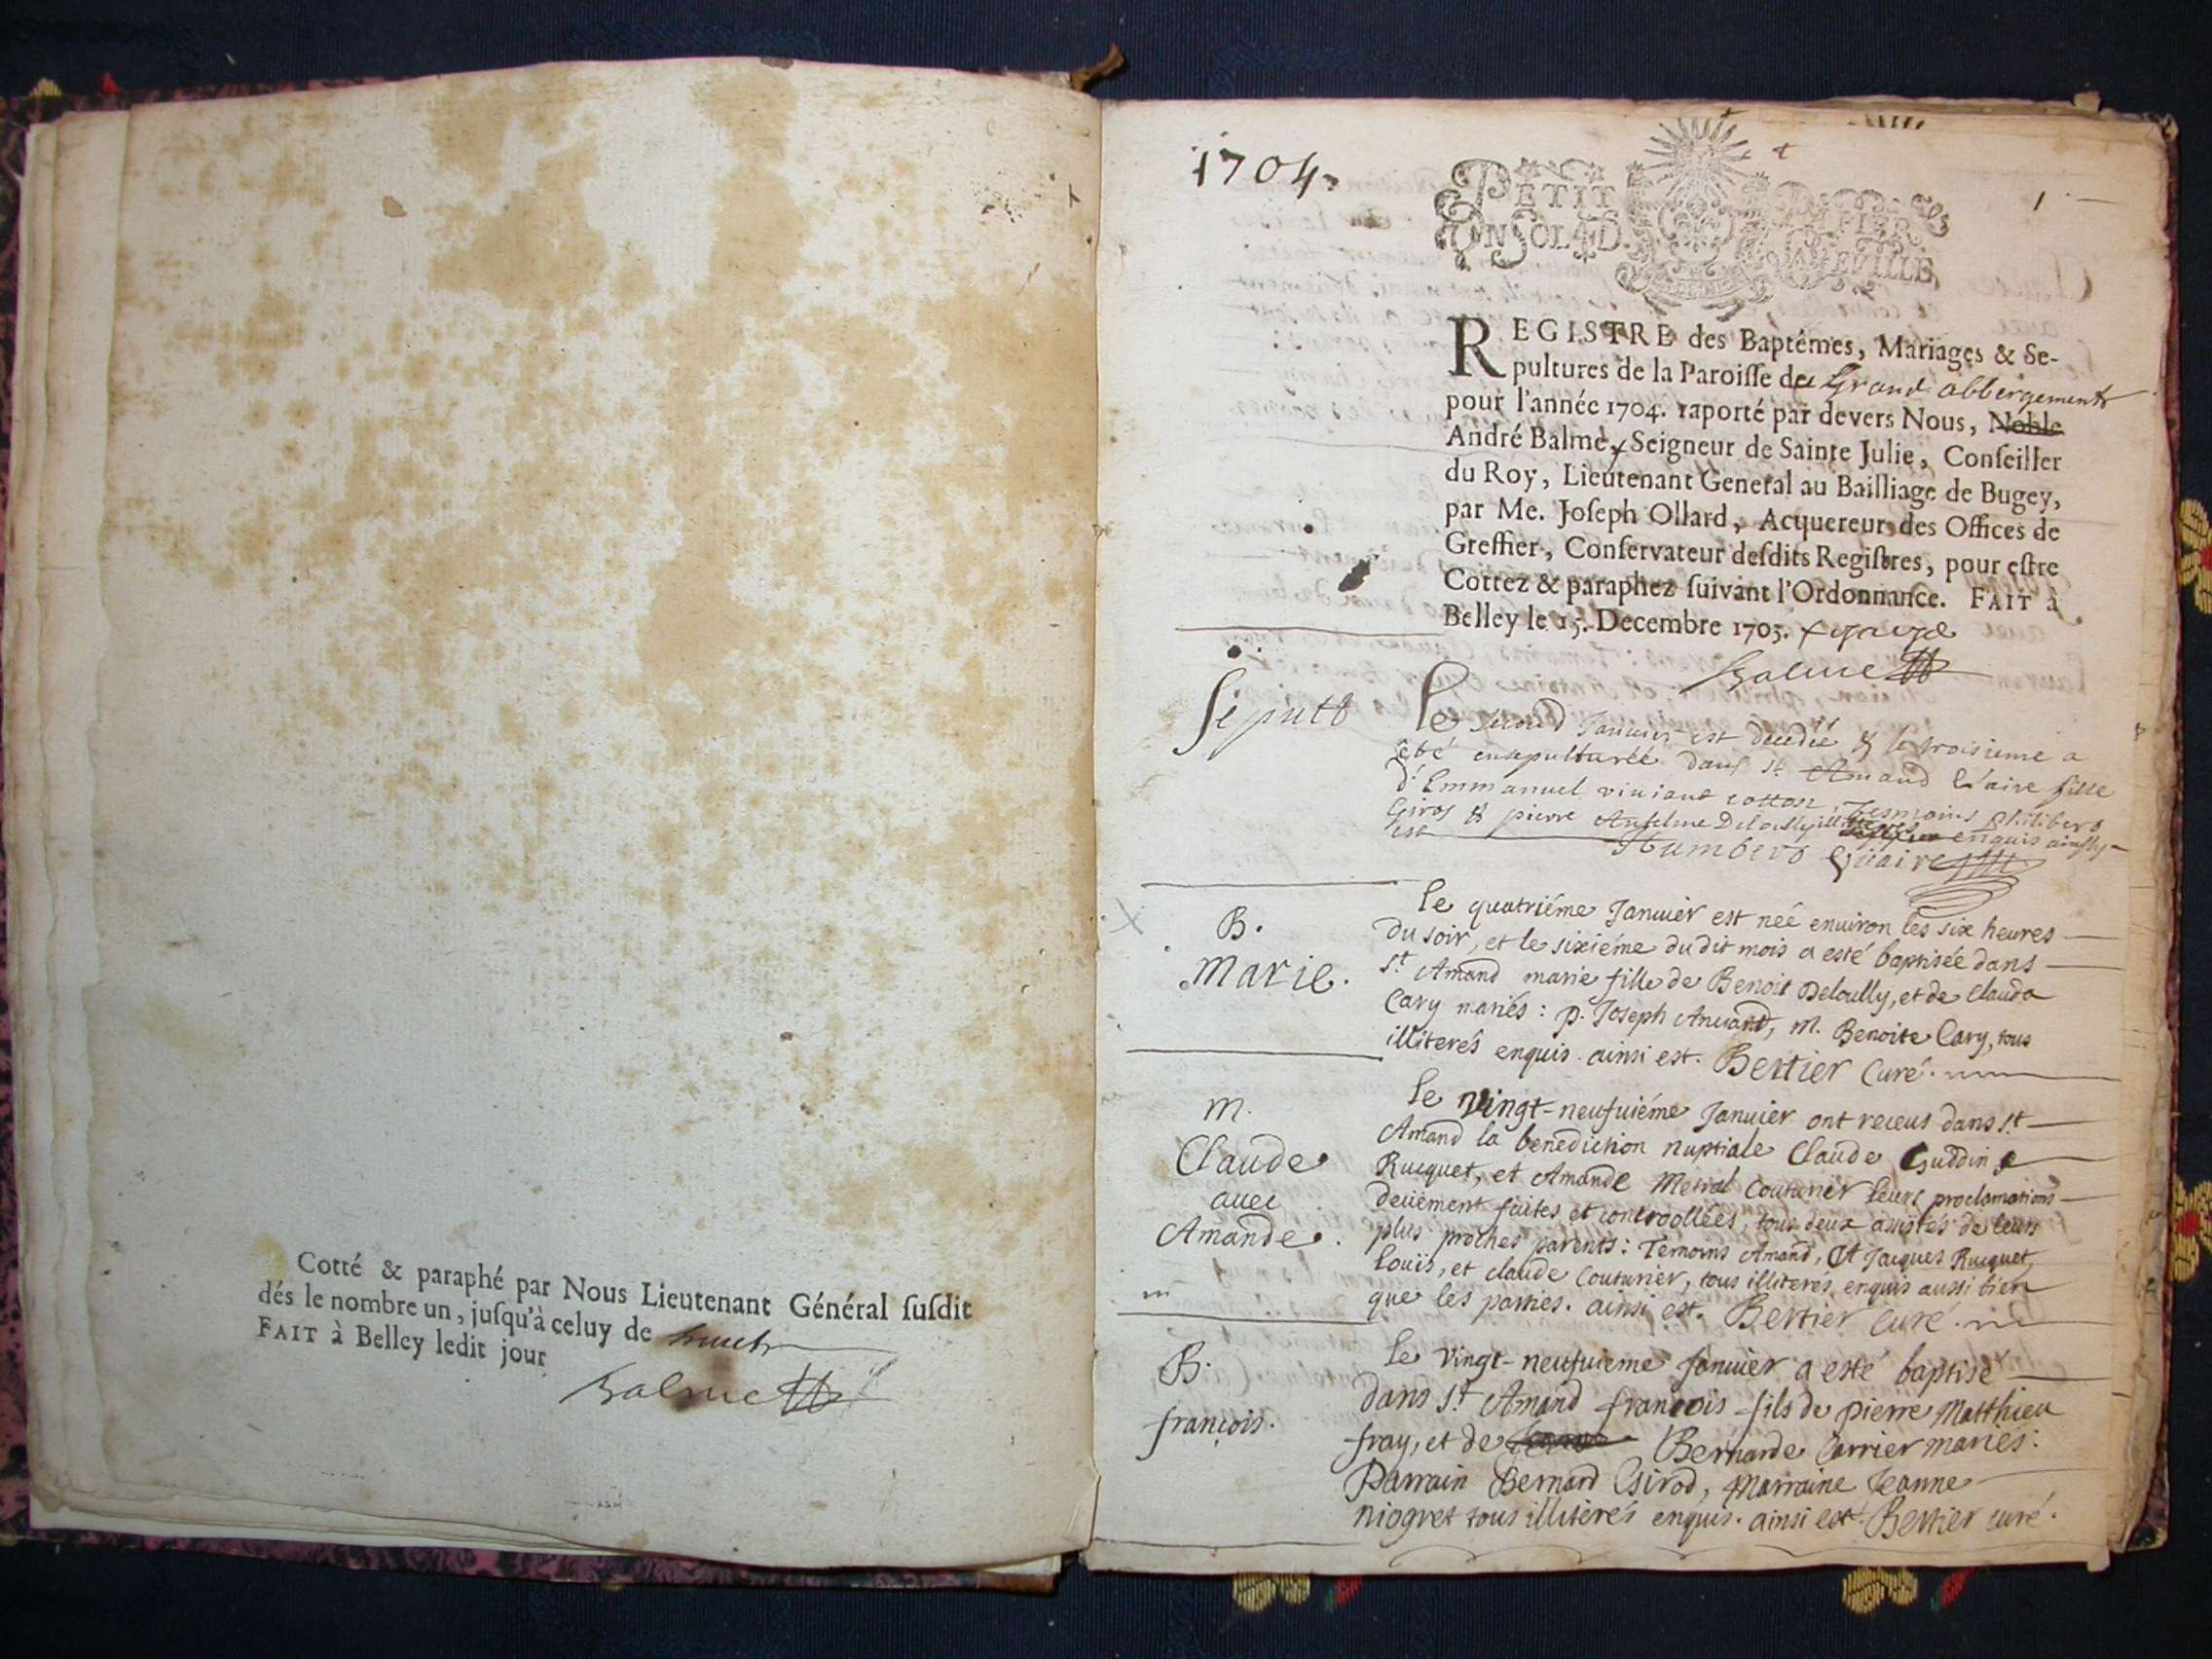 Cotté & paraphé par Nous Lieutenant Général ſuſdit
dés le nombre un, juſqu'à celuy de huict
FAIT à Belley ledit jour
Balme
1704.
1
PETIT PAPIER
UN SOL 4 D. LA FEUILLE
REGISTRE des Baptêmes, Mariages & Se-
pultures de la Paroiſſe de Grand abbergement
pour l'année 1704. raporté par devers Nous, Noble
André Balme, Seigneur de Sainte Julie, Conſeiller
du Roy, Lieutenant General au Bailliage de Bugey,
par Me. Joſeph Ollard, Acquereur des Offices de
Greffier, Conſervateur deſdits Regiſtres, pour eſtre
Cottez & paraphez ſuivant l'Ordonnance. FAIT à
Belley le 15. Decembre 1703.
Balme
Sepult
Le second Januier est decedée & le troisieme a
été ensepulturée dans St. Amand Claire fille
d'Emmanuel viuiant cotton, Tesmoins philibert
Girod & pierre Anselme Deloully enquis ainsy
est
Humbert vicaire
B.
Marie.
le quatriéme Januier est née enuiron les six heures
du soir, et le sixiéme du dit mois a esté baptisée dans
St Amand marie fille de Benoit Deloully, et de Clauda
Cary mariés : p. Joseph Anuand, m. Benoite Cary, tous
illiterés enquis. ainsi est. Bertier Curé.
M.
Claude
auec
Amande.
le vingt-neufuiéme Januier ont receus dans St
Amand la benediction nuptiale Claude Guddin
Rucquet, et Amande Metral Couturier leurs proclamations
deüement faites et controollées, tous deux assistés de leurs
plus proches parents : Temoins Amand, et Jacques Rucquet,
Louïs, et claude Couturier, tous illiteres enquis aussi bien
que les parties. ainsi est. Bertier curé.
B.
françois.
le vingt-neufuieme Januier a esté baptisé
dans St Amand francois fils de pierre Matthieu
fray, et de Bernarde Carrier mariés.
Parrain Bernard Girod, Marraine Jeanne
niogret tous illiterés enquis. ainsi est. Bertier curé.